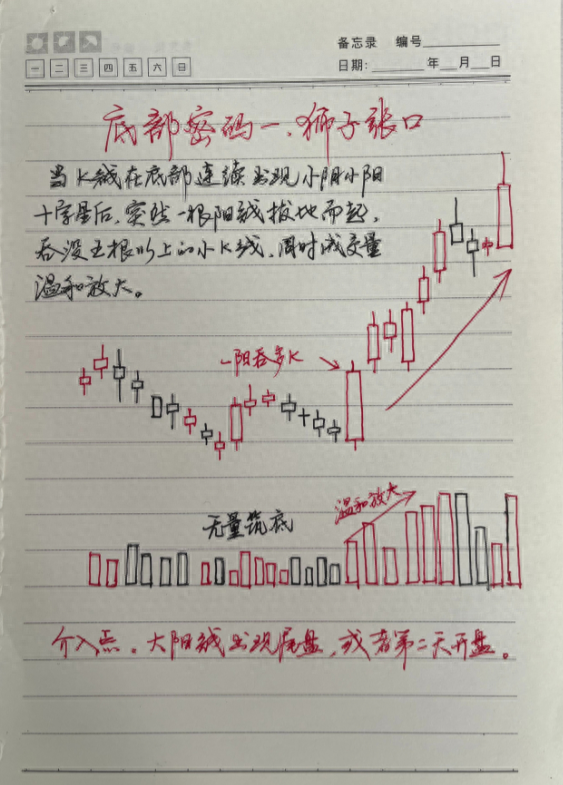 备忘录 编号
一 二 三 四 五 六 日
日期: 年 月 日
底部密码一、狮子张口
当K线在底部连续出现小阴小阳
十字星后，突然一根阳线拔地而起，
吞没五根以上的小K线，同时成交量
温和放大。
一阳吞多K
温和放大
无量筑底
介入点。大阳线出现尾盘，或者第二天开盘。